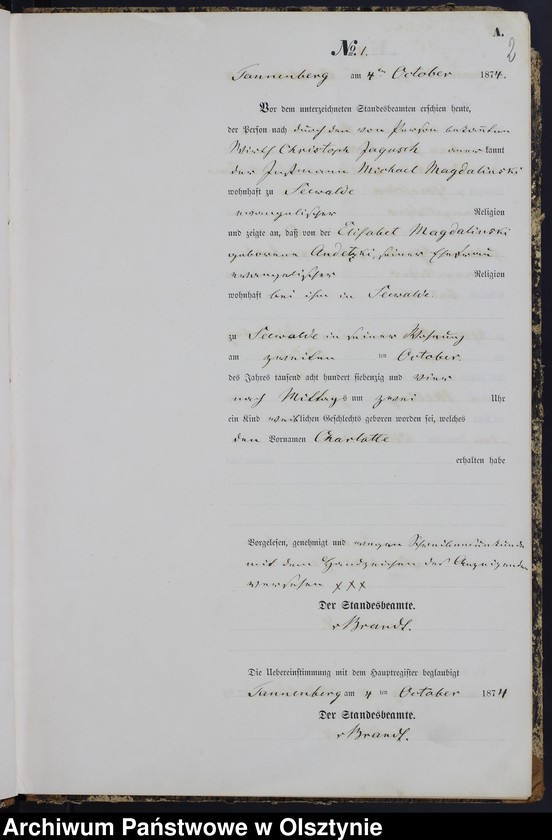 A.
2
No. 1.
Tannenberg am 4ten October 1874.
Vor dem unterzeichneten Standesbeamten erschien heute,
der Person nach durch den von Person bekannten
Wirth Christoph Jagusch anerkannt
der Instmann Michael Magdalinski
wohnhaft zu Seewalde
evangelischer Religion
und zeigte an, daß von der Elisabet Magdalinski
geborene Andetzki, seiner Ehefrau
evangelischer Religion
wohnhaft bei ihm in Seewalde
zu Seewalde in seiner Wohnung
am zweiten ten October
des Jahres tausend acht hundert siebenzig und vier
nach Mittags um zwei Uhr
ein Kind weiblichen Geschlechts geboren worden sei, welches
den Vornamen Charlotte
erhalten habe
Vorgelesen, genehmigt und wegen Schreibensunkunde
mit dem Handzeichen des Anzeigenden
versehen XXX
Der Standesbeamte.
v Brandt.
Die Uebereinstimmung mit dem Hauptregister beglaubigt
Tannenberg am 4 ten October 1874
Der Standesbeamte.
v Brandt.
Archiwum Państwowe w Olsztynie